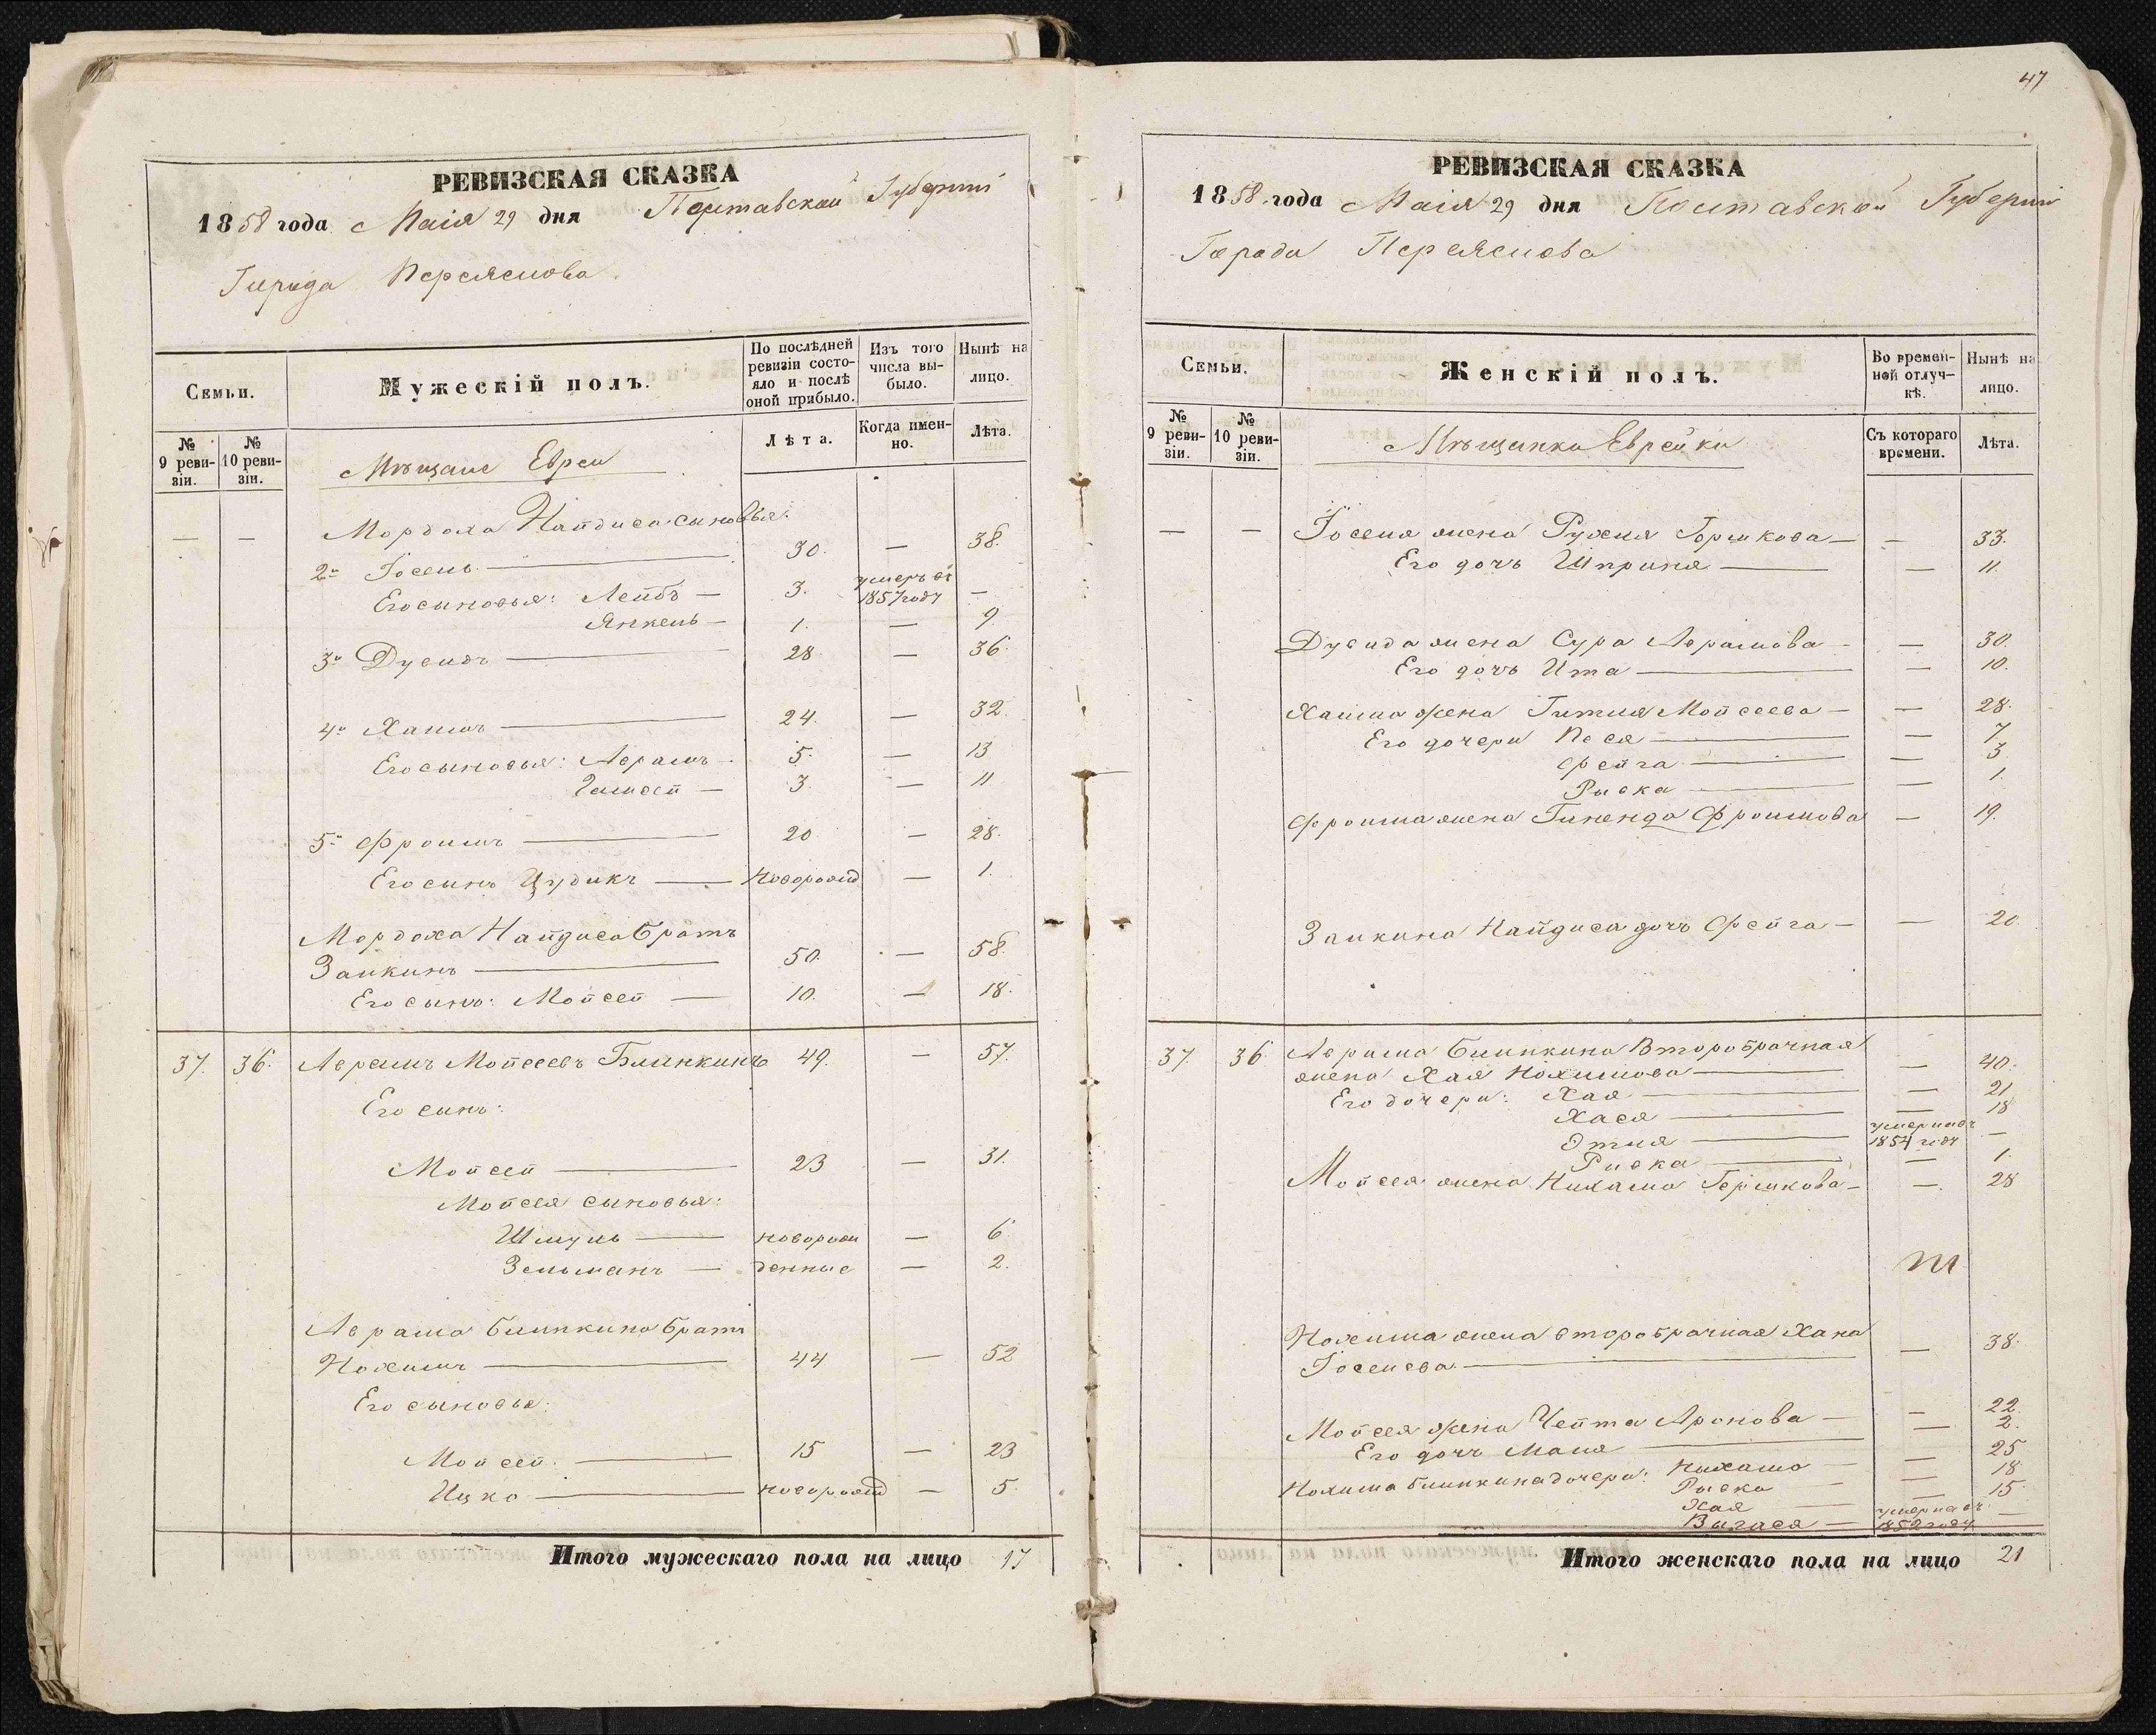 РЕВИЗСКАЯ СКАЗКА
1858 года Маія 29 дня Полтавской Губерніи
Города Переяслова
Семьи.
Мужескій полъ.
По послѣдней ревизіи состояло и послѣ оной прибыло.
Изъ того числа выбыло.
Нынѣ на лицо.
№ 9 ревизіи.
№ 10 ревизіи.
Мѣщане Евреи
Лѣта.
Когда именно.
Лѣта.
— — Мордоха Найдиса сыновья:
2й Іосель — 30. — 38.
Его сыновья: Лейбъ — 3. умеръ въ 1857 году —
Янкель — 1. — 9.
3й Дувидъ — 28 — 36.
4й Хаимъ — 24. — 32.
Его сыновья: Аврамъ — 5. — 13
3 — 11
5й Фроимъ — 20 — 28.
Его сынъ Цудикъ — новорожд — 1.
Мордоха Найдиса братъ
Занкинъ — 50. — 58.
Его сынъ: Мойсей — 10. — 18.
37. 36. Аврамъ Мойсеевъ Блинкинъ 49. — 57.
Его сынъ:
Мойсей — 23 — 31.
Мойсея сыновья:
Шмуль — новорож — 6.
Зельманъ — денные — 2.
Аврама Блинкина братъ
Нохимъ — 44 — 52
Его сыновья:
Мойсей. — 15 — 23
Ицко — новорожд — 5.
Итого мужескаго пола на лицо 17
47
РЕВИЗСКАЯ СКАЗКА
1858 года Маія 29 дня Полтавской Губерніи
Города Переяслова
Семьи.
Женскій полъ.
Во временной отлучкѣ.
Нынѣ на лицо.
№ 9 ревизіи.
№ 10 ревизіи.
Мѣщанки Еврейки
Съ котораго времени.
Лѣта.
— — Іоселя жена Рухля Гершкова — — 33.
Его дочь Шприня — — 11.
Дувида жена Сура Аврамова — — 30.
Его дочь Ита — — 10.
Хаима жена Гитля Мойсеева — — 28.
Его дочери Песя — — 7.
Фейга — — 3.
Рыска — — 1.
Фроима жена Гиненда Фроимова — 19.
Занкина Найдиса дочь Фейга — — 20
37. 36 Аврама Блинкина второбрачная
жена Хая Нохимова — — 40.
Его дочери: Хая — — 21
Хася — — 18
Этля — умерла въ 1854 году —
Рыска — — 1.
Мойсея жена Нихама Гершкова — — 28
Нохима жена второбрачная Хана
Іоселева. — — 38.
Мойсея жена Чейта Аронова — — 22.
Его дочь Маня — — 2.
Нохима Блинкина дочери: Нихама — — 25
Рыска — — 18
Хая — — 15.
Вигася — умерла въ 1852 году —
Итого женскаго пола на лицо 21